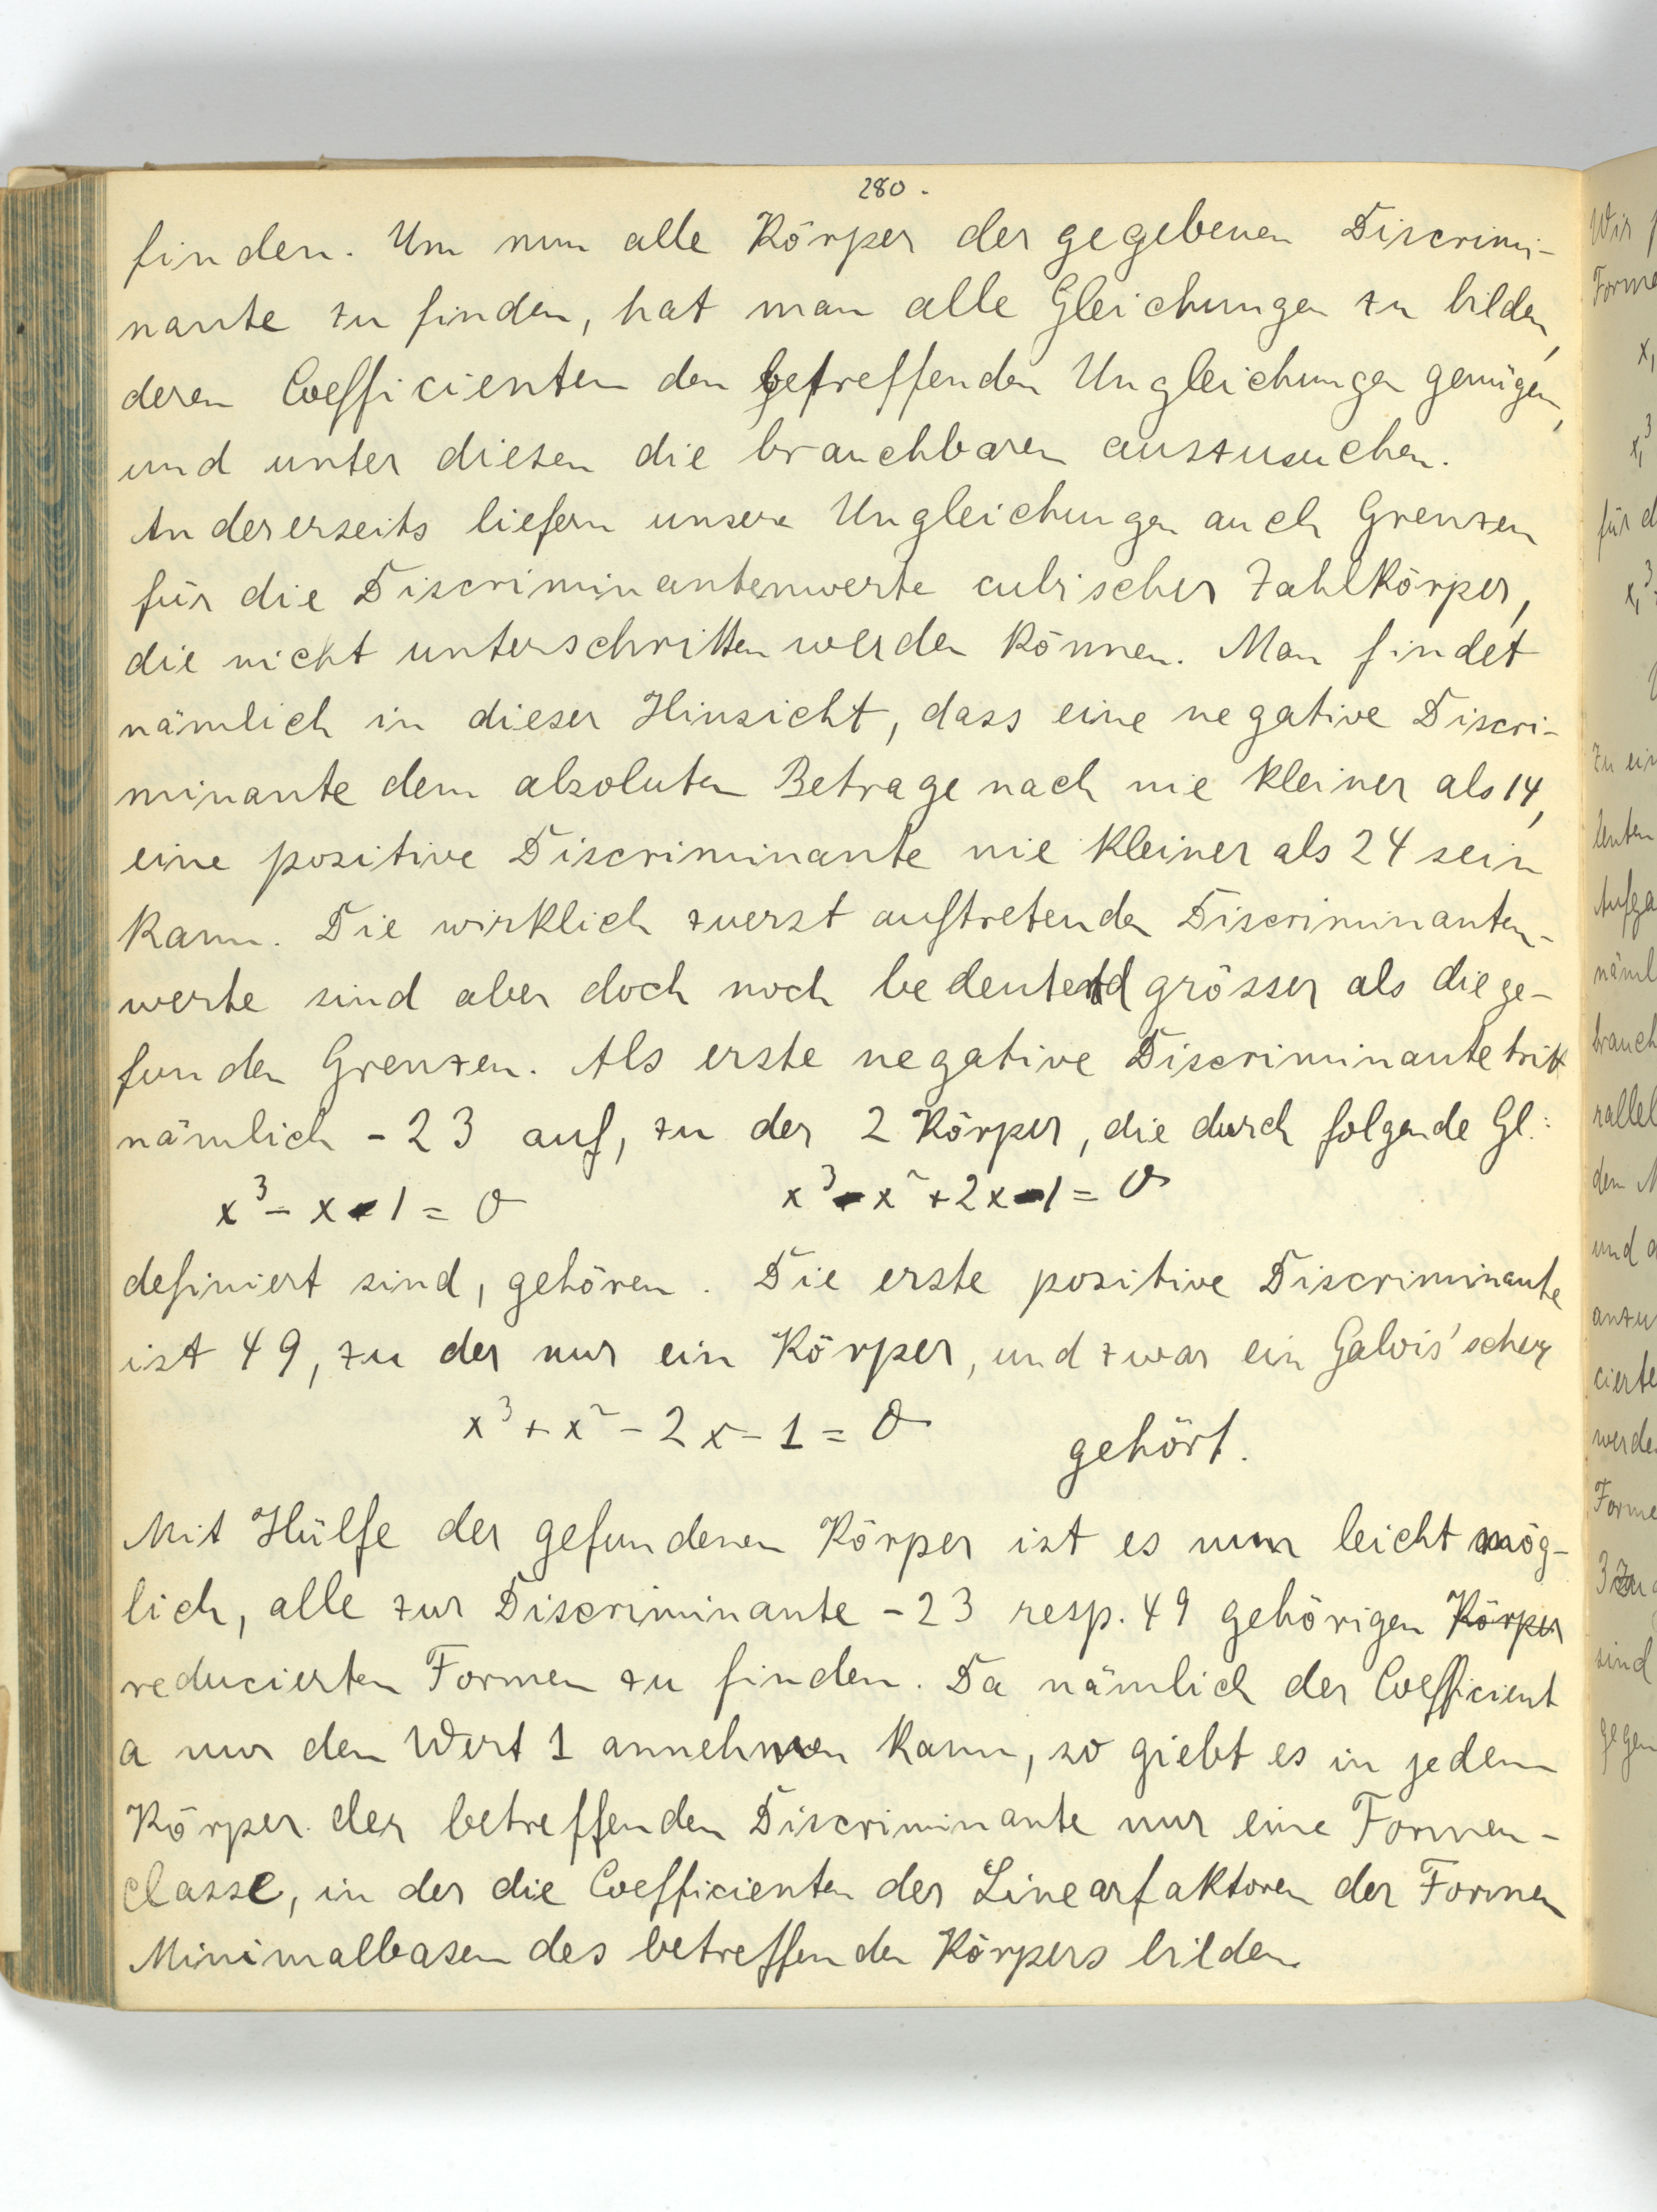 280.
finden. Um nun alle Körper der gegebenen Discrimi-
nante zu finden, hat man alle Gleichungen zu bilden,
deren Coefficienten den betreffenden Ungleichungen genügen,
und unter diesen die brauchbaren auszusuchen.
Andererseits liefern unsere Ungleichungen auch Grenzen
für die Discriminantenwerte cubischer Zahlkörper,
die nicht unterschritten werden können. Man findet
nämlich in dieser Hinsicht, dass eine negative Discri-
minante dem absoluten Betrage nach nie kleiner als 14,
eine positive Discriminante nie kleiner als 24 sein
kann. Die wirklich zuerst auftretenden Discriminanten-
werte sind aber doch noch bedeutend grösser als die ge-
funden Grenzen. Als erste negative Discriminante tritt
nämlich -23 auf, zu der 2 Körper, die durch folgende Gl.:
x³ - x - 1 = 0 x³ - x² + 2x - 1 = 0
definiert sind, gehören. Die erste positive Discriminante
ist 49, zu der nur ein Körper, und zwar ein Galois'scher
x³ + x² - 2x - 1 = 0 gehört.
Mit Hülfe der gefundenen Körper ist es nun leicht mög-
lich, alle zur Discriminante -23 resp. 49 gehörigen Körper
reducierten Formen zu finden. Da nämlich der Coefficient
a nur den Wert 1 annehmen kann, so giebt es in jedem
Körper der betreffenden Discriminante nur eine Formen-
classe, in der die Coefficienten der Linearfaktoren der Formen
Minimalbasen des betreffenden Körpers bilden.
Wir
Forme
für d
zu ein
Unten
Aufga
näml
brauch
rallel
dem M
und
anzu
cierte
werde
Forme
sind
gegen